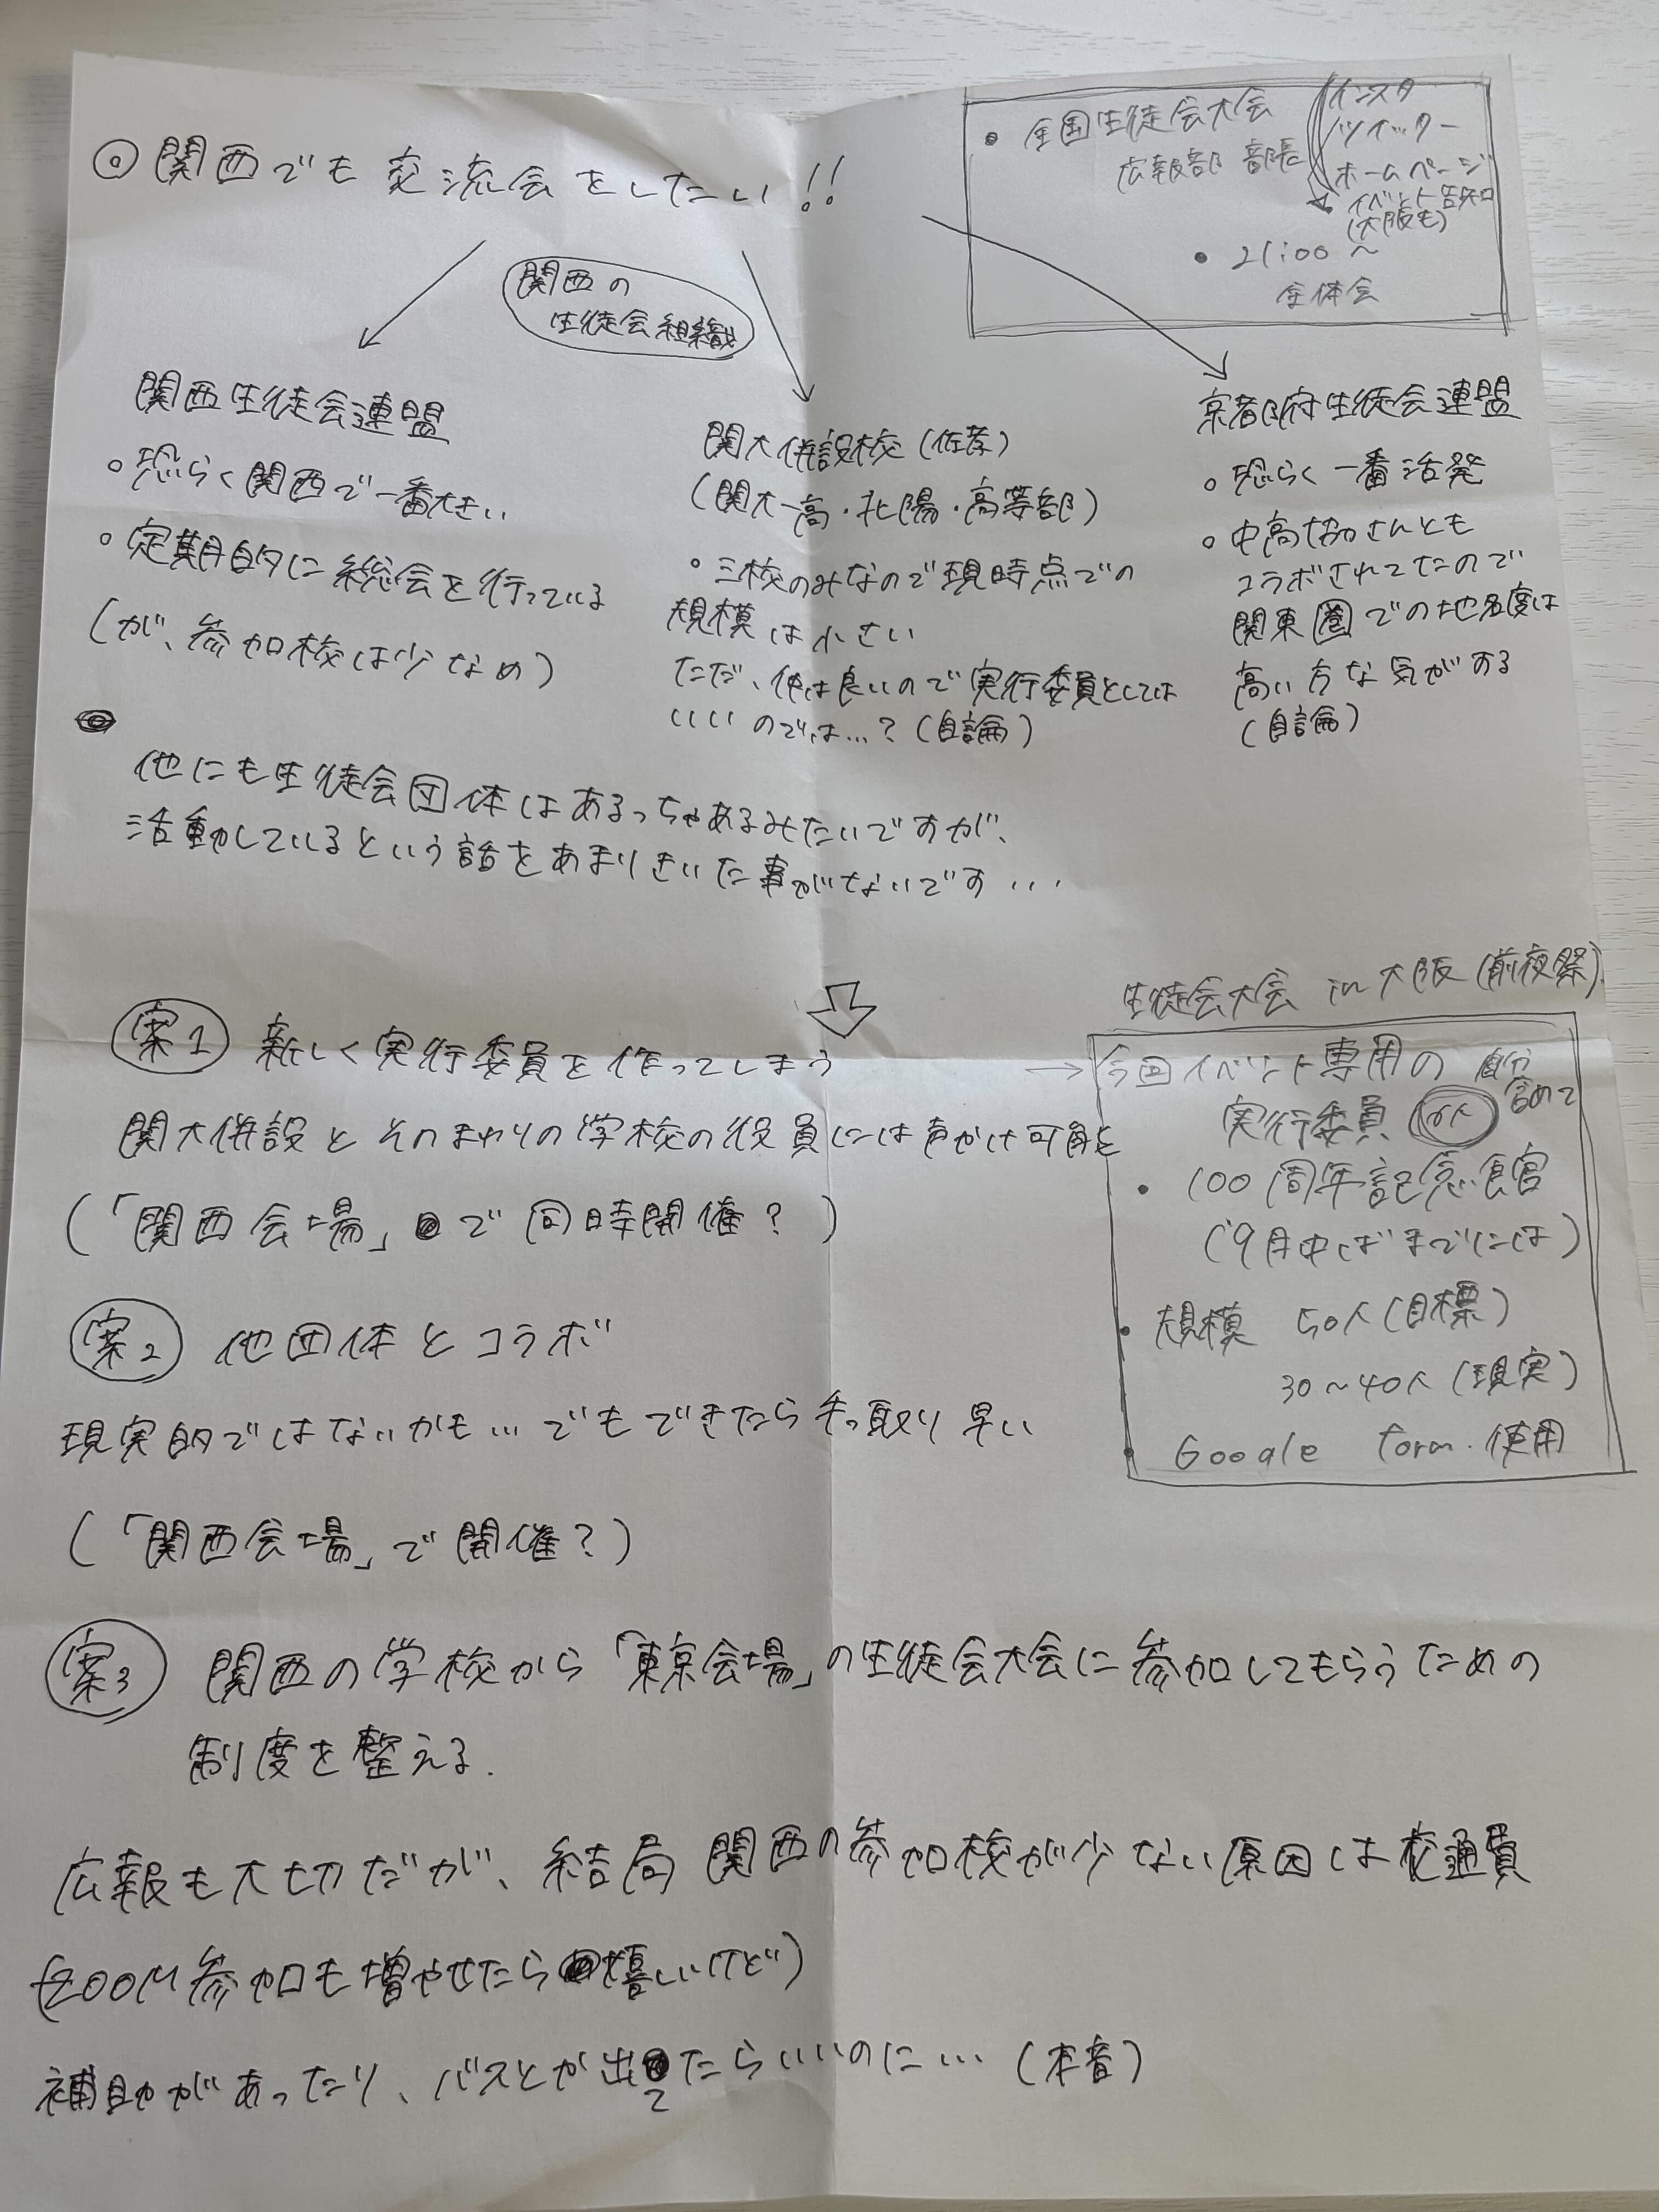 ◎関西でも交流会をしたい!!
関西の
生徒会組織
・全国生徒会大会
広報部 部長
インスタ
ツイッター
ホームページ
イベント告知
(大阪も)
・21:00〜
全体会
関西生徒会連盟
○恐らく関西で一番大きい
○定期的に総会を行っている
(が、参加校は少なめ)
関大併設校(佐孝)
(関大一高・北陽・高等部)
○三校のみなので現時点での
規模は小さい
ただ、仲は良いので実行委員としては
いいのでは…?(自論)
京都府生徒会連盟
○恐らく一番活発
○中高協さんとも
コラボされてたので
関東圏での知名度は
高い方な気がする
(自論)
他にも生徒会団体はあるっちゃあるみたいですが、
活動しているという話をあまりきいた事がないです…
案1 新しく実行委員を作ってしまう
関大併設とそのまわりの学校の役員には声かけ可能
(「関西会場」で同時開催?)
案2 他団体とコラボ
現実的ではないかも…でもできたら手っ取り早い
(「関西会場」で開催?)
生徒会大会 in 大阪(前夜祭)
→今回イベント専用の 自分
実行委員 含めて
・100周年記念館
(9月中ばまでには)
・規模 50人(目標)
30〜40人(現実)
・Google form. 使用
案3 関西の学校から「東京会場」の生徒会大会に参加してもらうための
制度を整える.
広報も大切だが、結局関西の参加校が少ない原因は交通費
(ZOOM参加も増やせたら嬉しいけど)
補助があったり、バスとか出てたらいいのに…(本音)